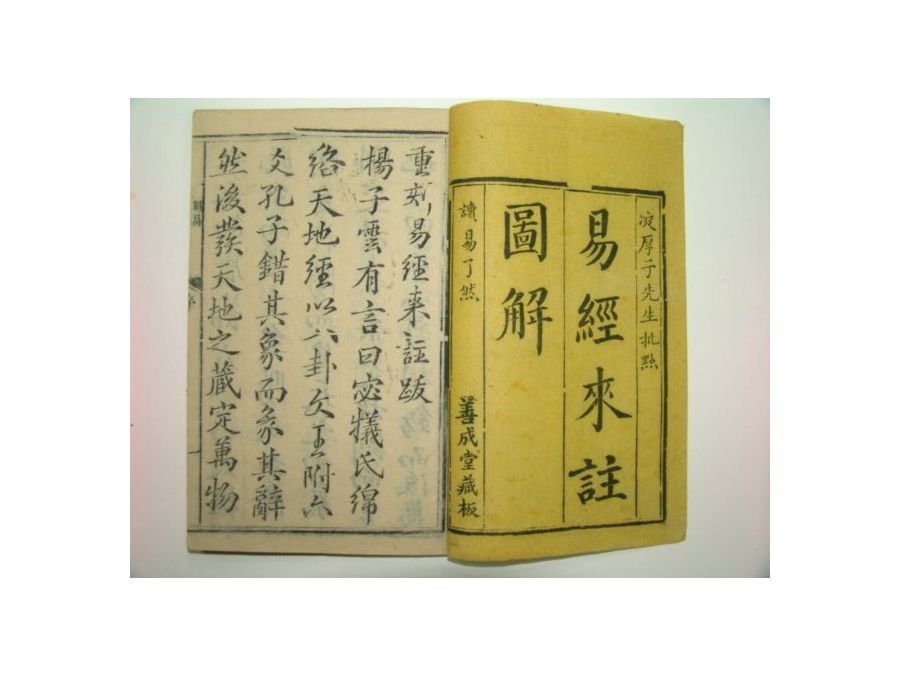 凌厚子先生批點
易經來註
圖解
讀易了然
善成堂藏板
重刻易經来註跋
楊子雲有言曰宓犧氏綿
絡天地經以八卦文王附六
爻孔子錯其象而彖其辭
然後發天地之藏定萬物